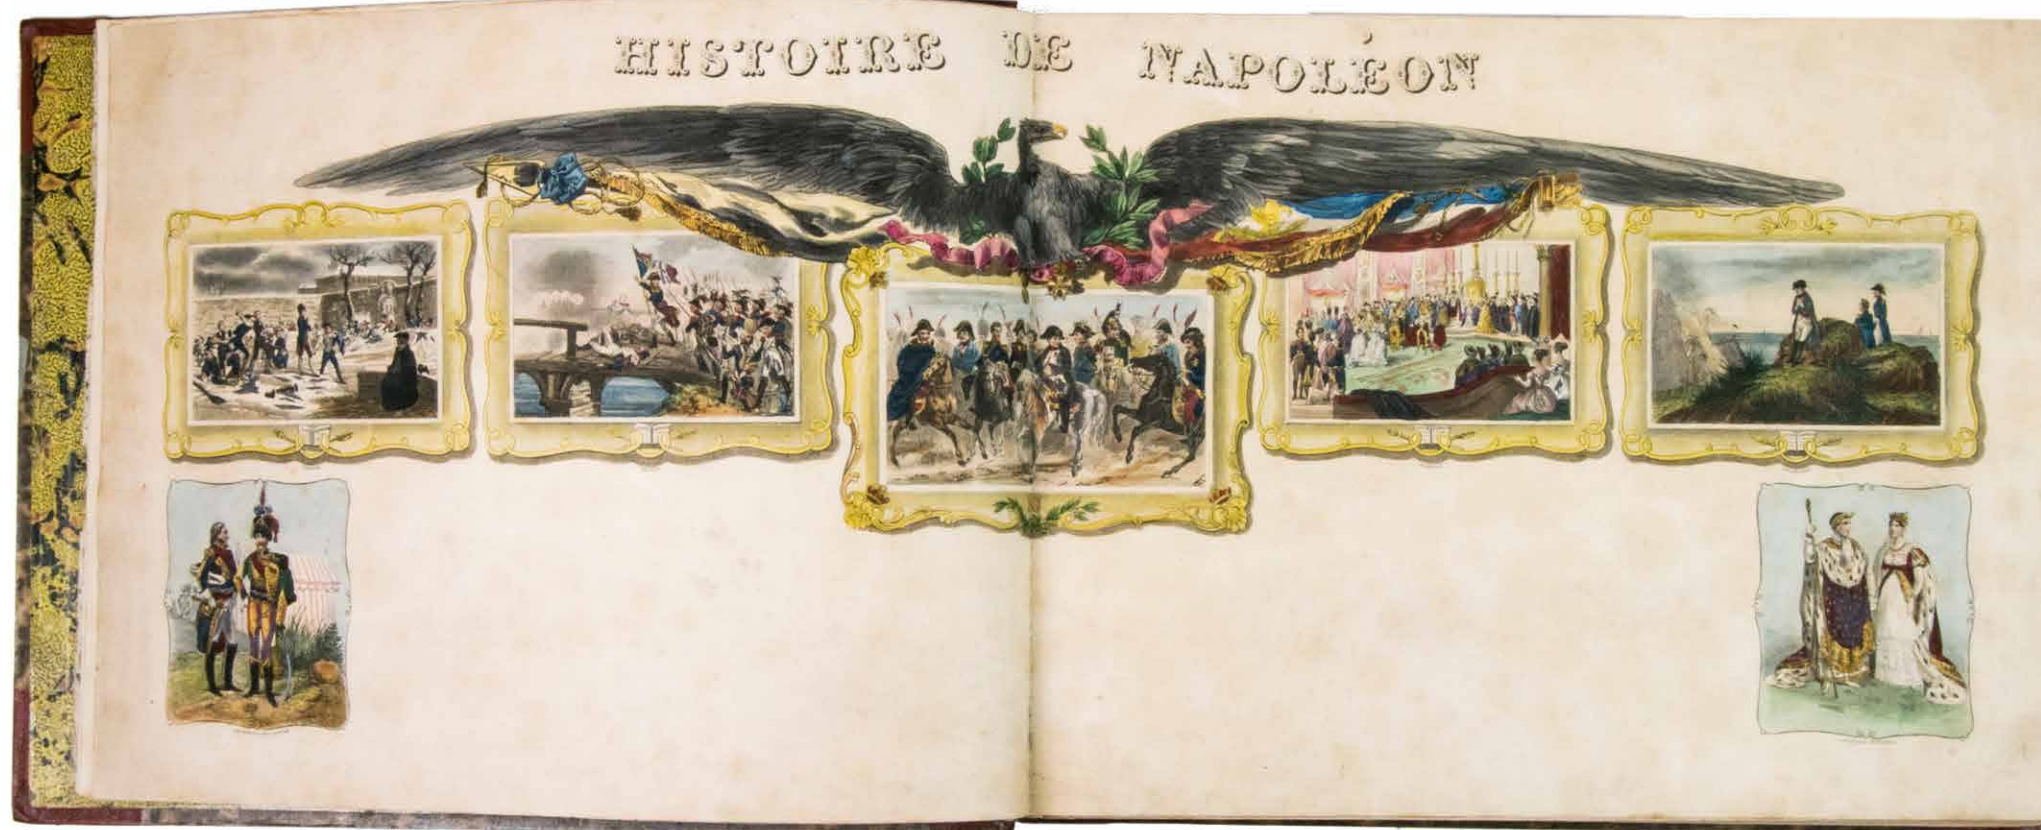 HISTOIRE DE NAPOLÉON